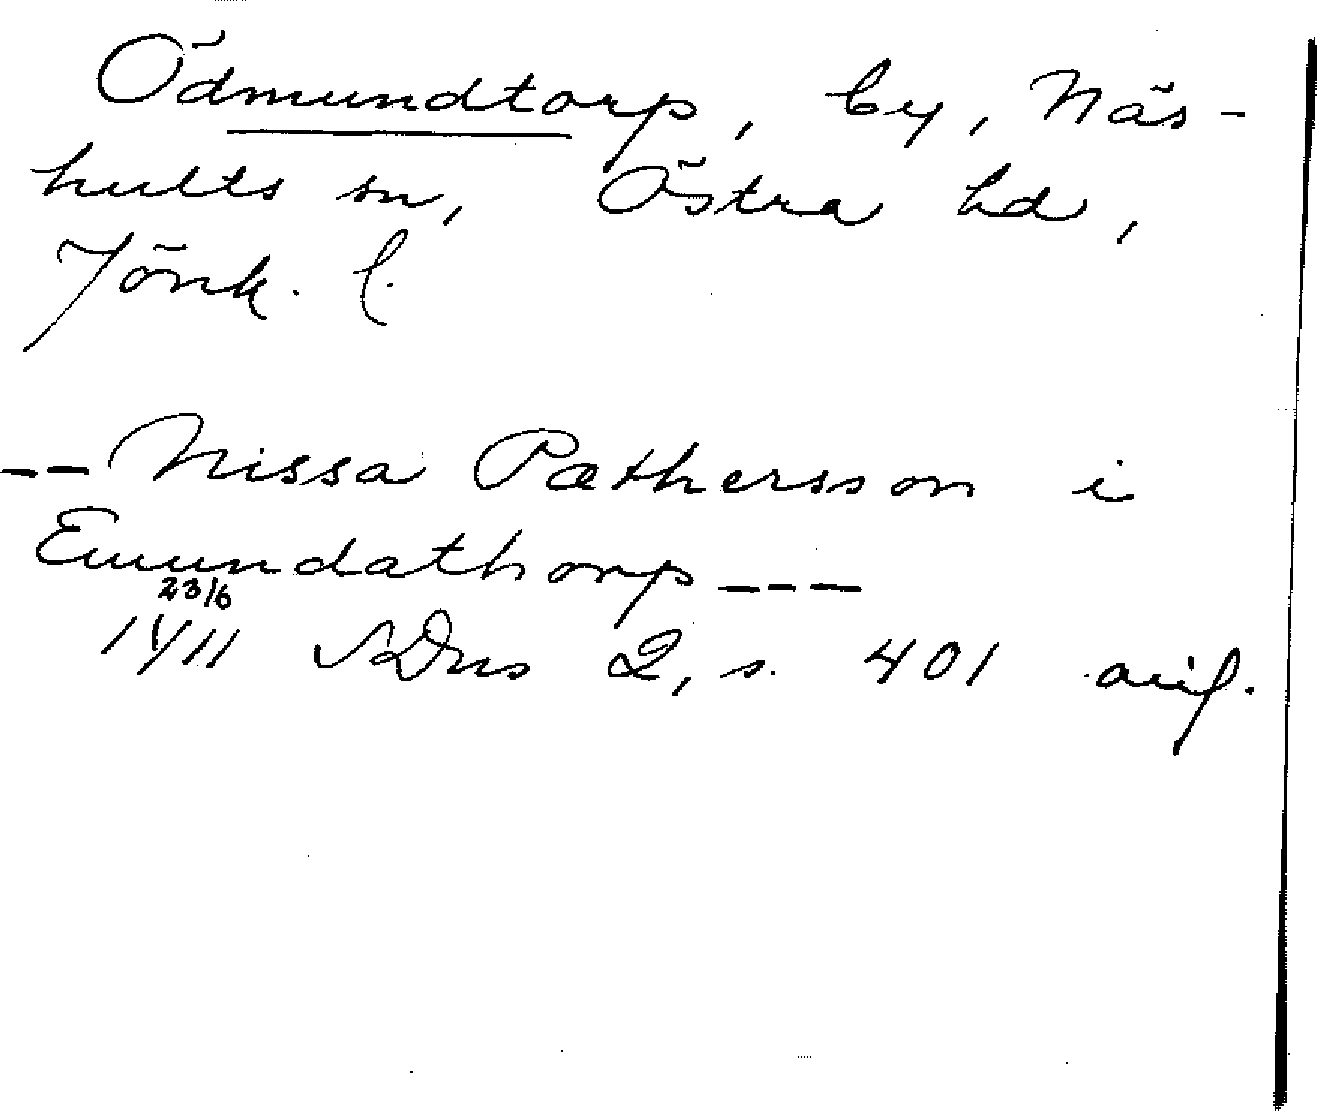 Ödmundtorp, by, Näs-
hults sn, Östra hd,
Jönk. l.
-- Nissa Pæthersson i
Emundathorp ---
23/6
1411 SDns 2, s. 401 avs.